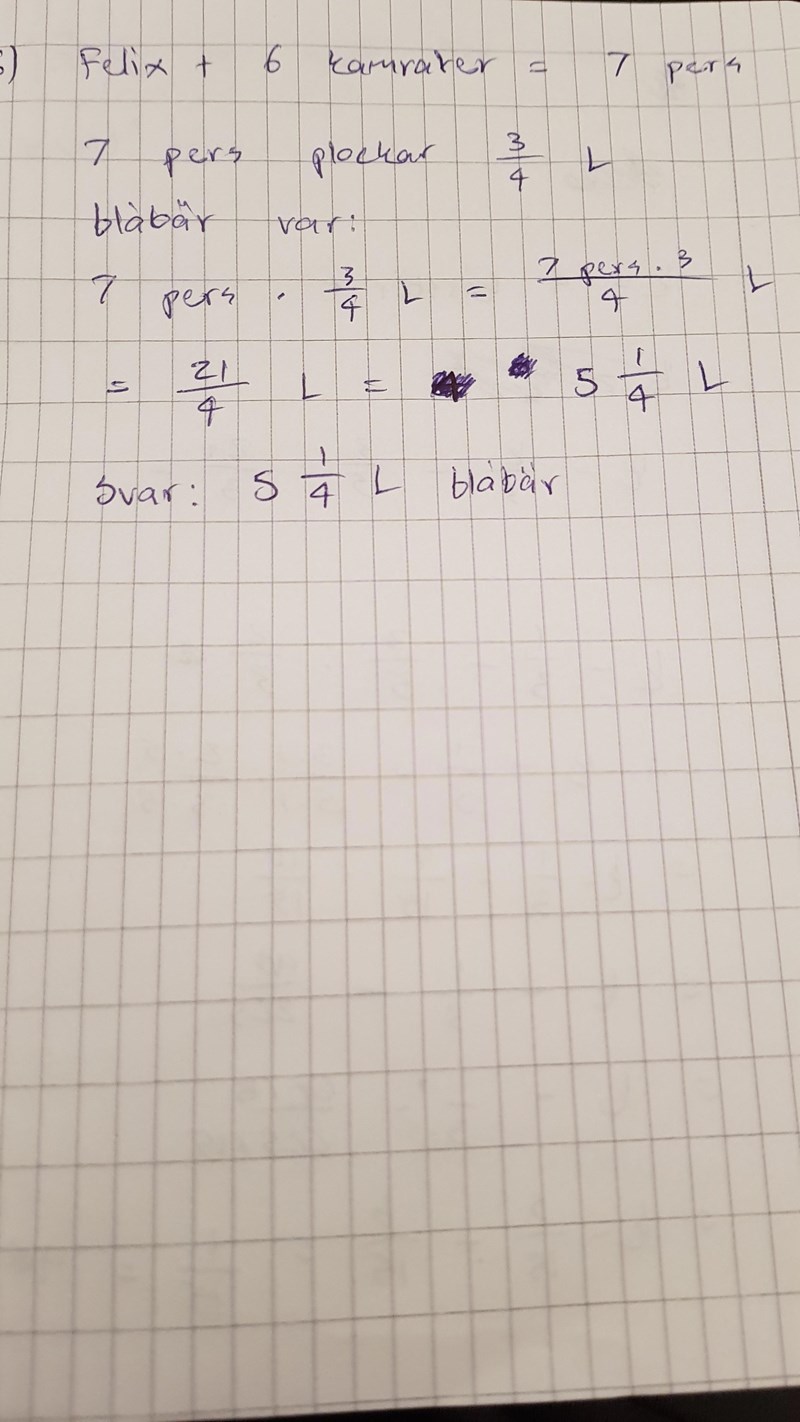 ) Felix + 6 kamrater = 7 pers
7 pers plockar 3/4 L
blåbär var:
7 pers · 3/4 L = (7 pers · 3)/4 L
= 21/4 L = 5 1/4 L
Svar: 5 1/4 L blåbär